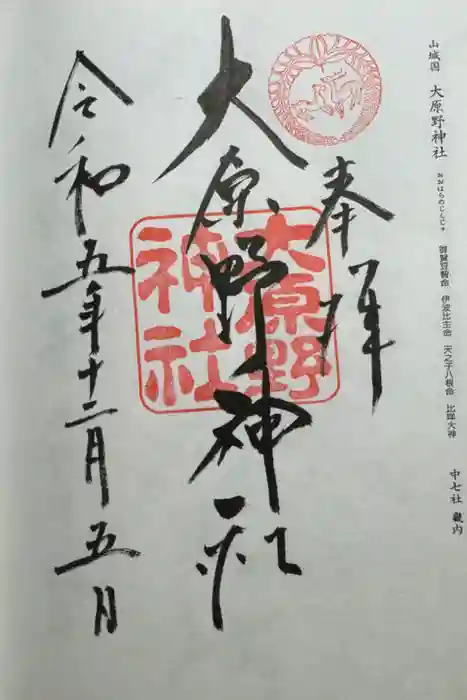 山城国 大原野神社 おおはらのじんじゃ 御賀豆智命 伊波比主命 天之子八根命 比咩大神 中七社 蔵内
奉拝
大原野神社
大原野
神社
令和五年十二月五日